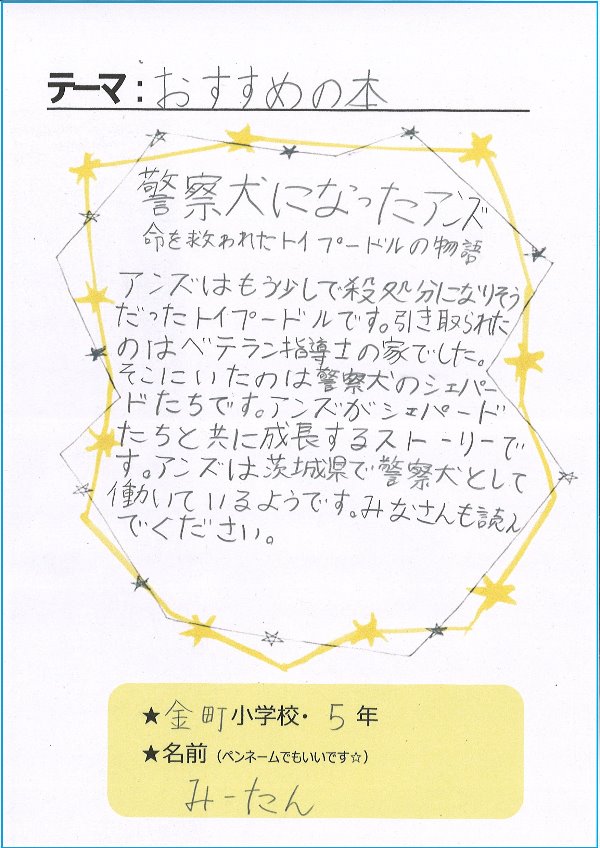 テーマ：おすすめの本
警察犬になったアンズ
命を救われたトイプードルの物語
アンズはもう少しで殺処分になりそう
だったトイプードルです。引き取られた
のはベテラン指導士の家でした。
そこにいたのは警察犬のシェパー
ドたちです。アンズがシェパード
たちと共に成長するストーリーで
す。アンズは茨城県で警察犬として
働いているようです。みなさんも読ん
でください。
★金町小学校・5年
★名前（ペンネームでもいいです☆）
みーたん